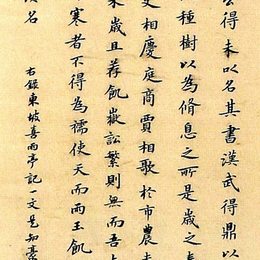 公得禾以名其書漢武得鼎以
種樹以為脩息之所是歲之
吏相慶庭商賈相歌於市農
歲且荐飢嶽訟繁則無而吾
寒者不得為襦使天而雨玉飢
右錄東坡喜雨亭記一文
名